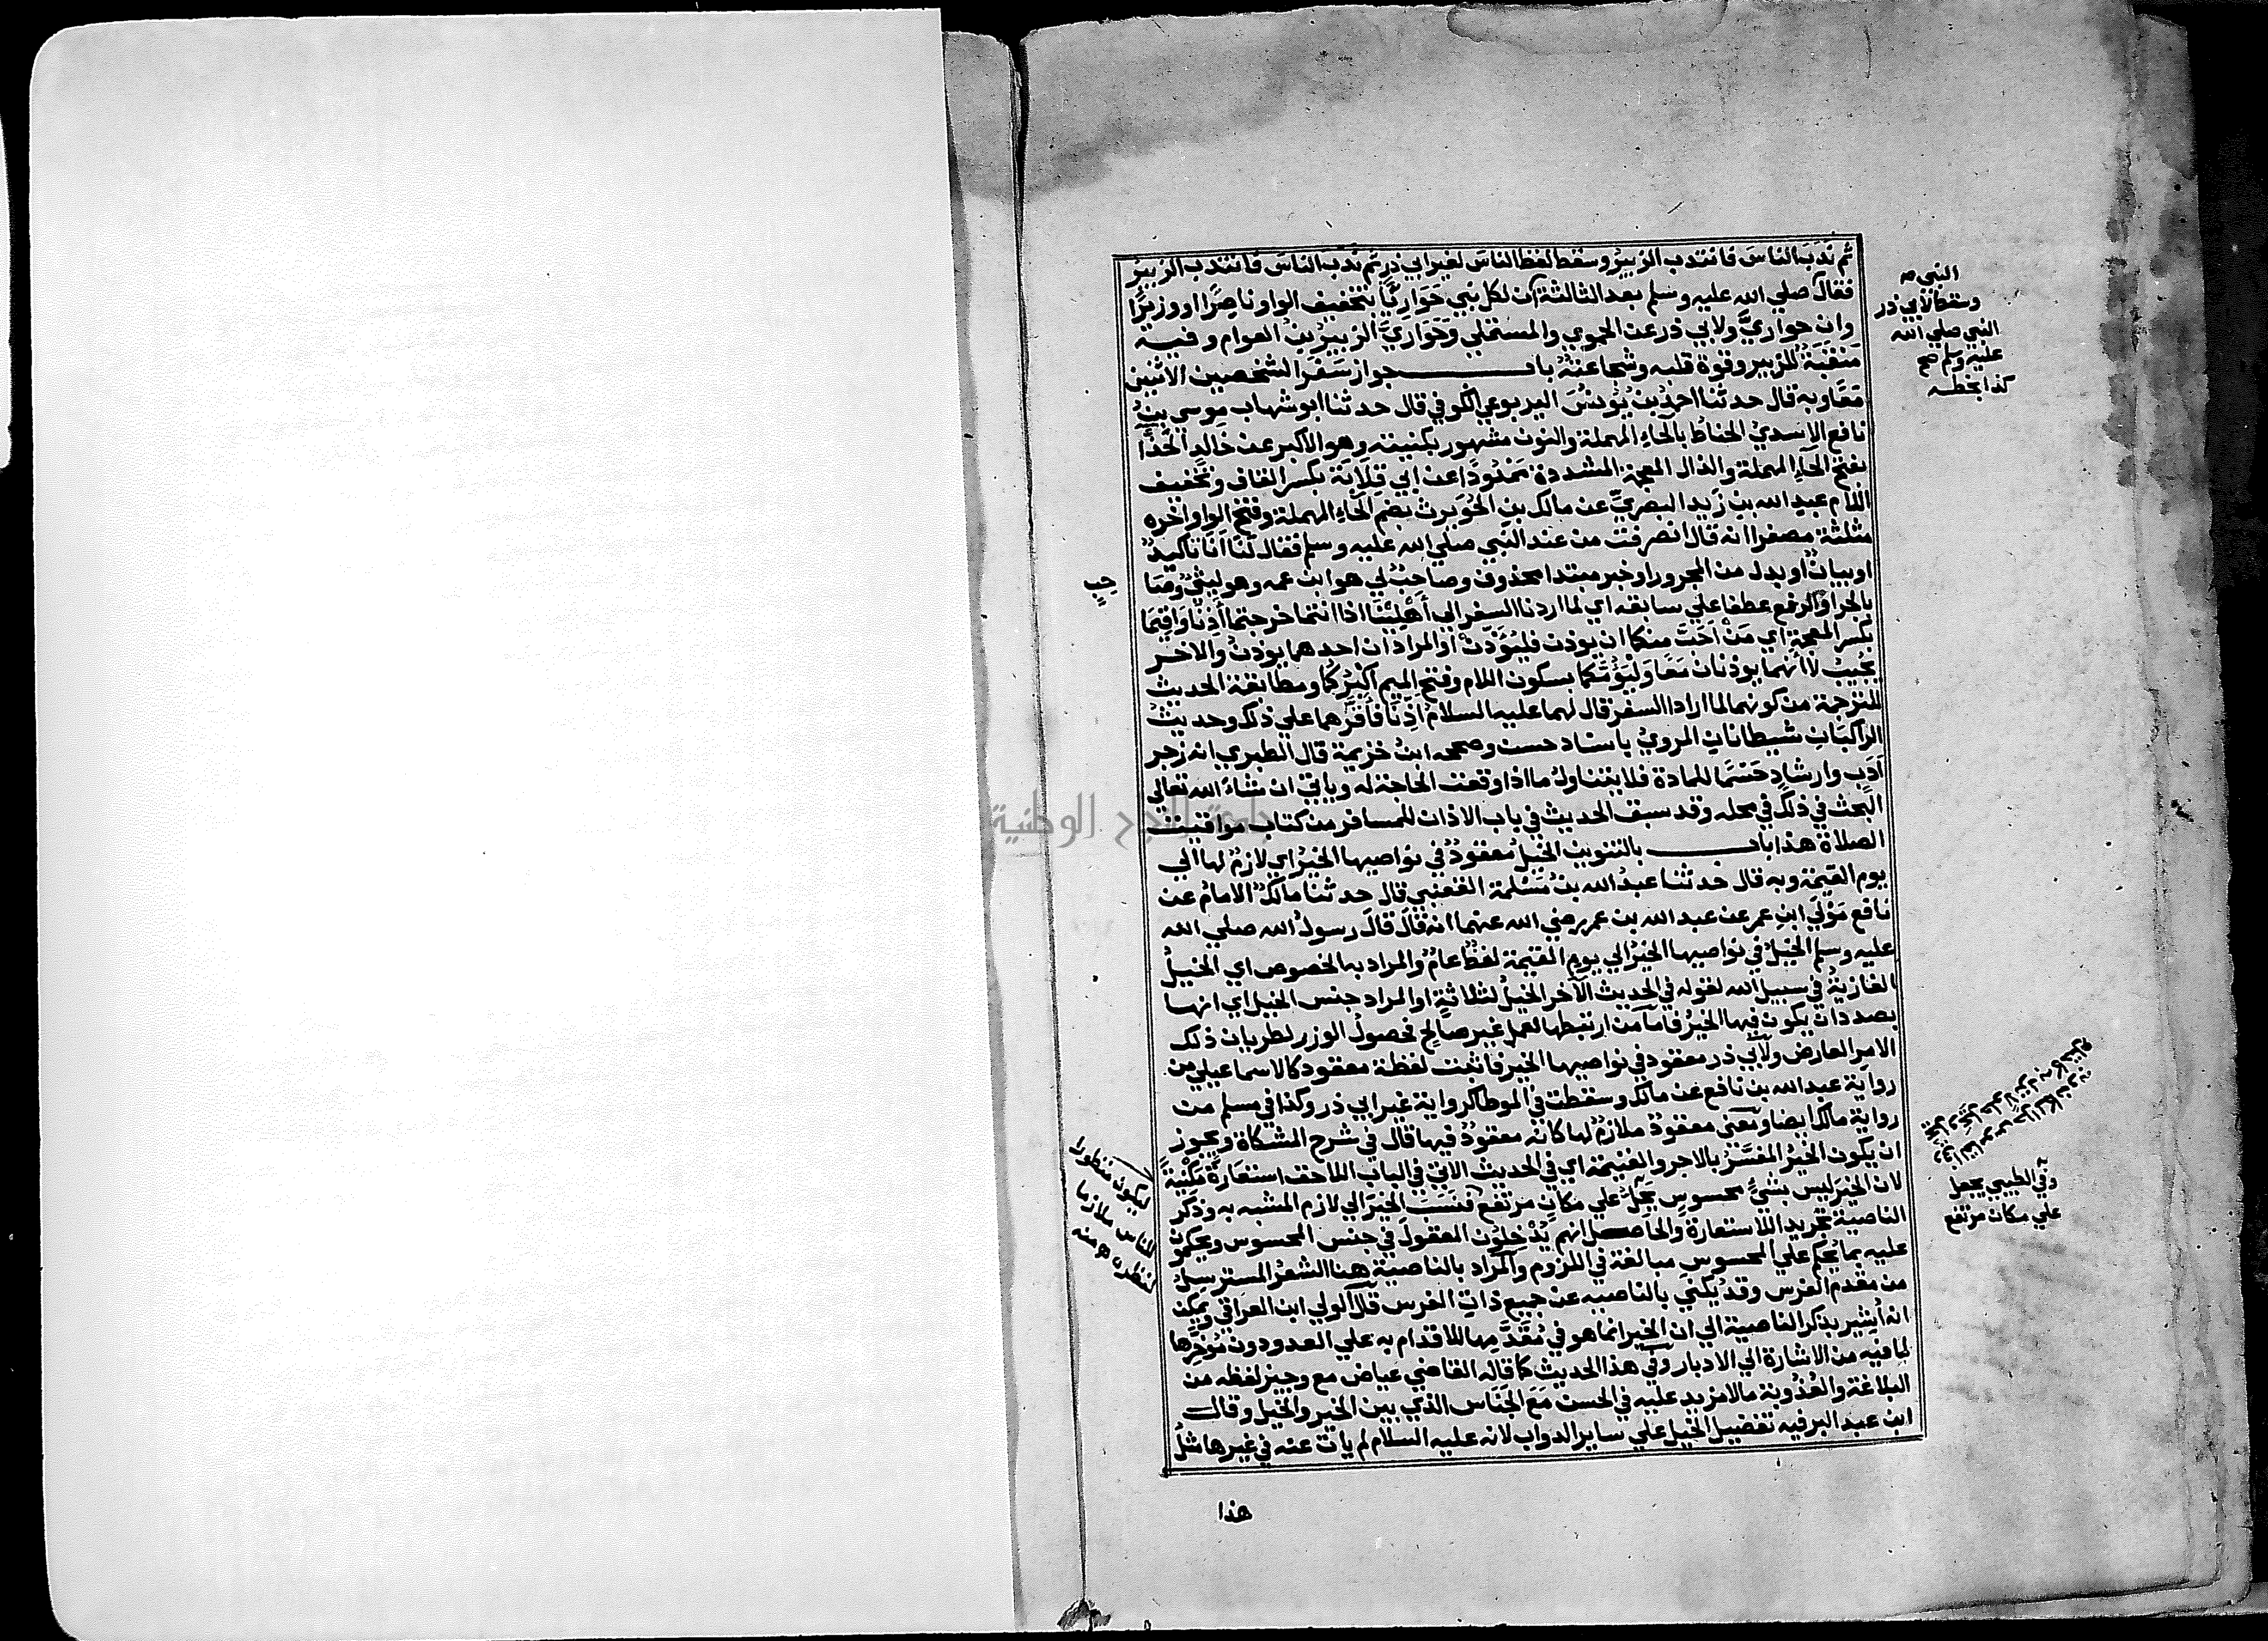 ثم ندب الناس فانتدب الزبير وسقط لفظ الناس لغير ابي ذر ثم ندب الناس فانتدب الزبير
فقال صلي الله عليه وسلم بعد الثالثة ان لكل نبي حواريا بتخفيف الواو ناصرا او وزيرا
وان حواري ولابي ذر عن الحموي والمستملي وحواري الزبير بن العوام وفيه
منقبة للزبير وقوة قلبه وشجاعته باب جواز سفر الشخصين الاثنين
معا وبه قال حدثنا احمد بن يونس اليربوعي الكوفي قال حدثنا ابو شهاب موسي بن
نافع الاسدي الحناط بالحاء المهملة والنون مشهور بكنيته وهو الاكبر عن خالد الحذا
بفتح الحاء المهملة والذال المعجمة المشددة ممدودا عن ابي قلابة بكسر القاف وتخفيف
اللام عبد الله بن زيد البصري عن مالك بن الحويرث بضم الحاء المهملة وفتح الواو اخره
مثلثة مصغرا انه قال انصرفت من عند النبي صلي الله عليه وسلم فقال لنا انا تاكيد
او بيان او بدل من المجرور او خبر مبتدا محذوف وصاحب لي هو ابن عمه وهو ليثي
بالجر او الرفع عطفا علي سابقه اي لما اردنا السفر الي اهلينا اذا انتما خرجتما اذنا واقيما
بكسر المعجمة اي من احب منكما ان يوذن فليوذن او المراد ان احدهما يوذن والاخر
يجيب لا انهما يوذنان معا وليؤمكما بسكون اللام وفتح الميم اكبركما ومطابقة الحديث
للترجمة من كونهما لما ارادا السفر قال لهما عليه السلام اذنا فاقرهما علي ذلك وحديث
الراكبان شيطانان المروي باسناد حسن وصححه ابن خزيمة قال الطبري انه زجر
ادب وارشاد حسما للمادة فلا يتناول ما اذا وقعت الحاجة له وياتي ان شاء الله تعالي
البحث في ذلك في محله وقد سبق الحديث في باب الاذان للمسافر من كتاب مواقيت
الصلاة هذا باب بالتنوين الخيل معقود في نواصيها الخير اي لازم لها الي
يوم القيمة وبه قال حدثنا عبد الله بن مسلمة القعنبي قال حدثنا مالك الامام عن
نافع مولي ابن عمر عن عبد الله بن عمر رضي الله عنهما انه قال قال رسول الله صلي الله
عليه وسلم الخيل في نواصيها الخير الي يوم القيمة لفظ عام والمراد به الخصوص اي الخيل
الغازية في سبيل الله لقوله في الحديث الاخر الخيل لثلاثة او المراد جنس الخيل اي انها
بصدد ان يكون فيها الخير فاما من ارتبطها لعمل غير صالح فحصول الوزر لطريان ذلك
الامر العارض ولابي ذر معقود في نواصيها الخير فاثبت لفظة معقود كالاسماعيلي من
رواية عبد الله بن نافع عن مالك وسقطت في الموطا كرواية غير ابي ذر وكذا في مسلم من
رواية مالك ايضا ومعني معقود ملازم لها كانه معقود فيها قال في شرح المشكاة ويجوز
ان يكون الخير المفسر بالاجر والغنيمة اي في الحديث الاتي في الباب اللاحق استعارة مكنية
لان الخير ليس بشئ محسوس يجعل علي مكان مرتفع فنسب الخير الي لازم المشبه به وذكر
الناصية تجريد اللاستعارة والحاصل انهم يدخلون المعقول في جنس المحسوس ويحكمون
عليه بما يحكم علي المحسوس مبالغة في اللزوم والمراد بالناصية هنا الشعر المسترسل
من مقدم الفرس وقد يكني بالناصيه عن جميع ذات الفرس قال الولي ابن العراقي ويمكن
انه اشير بذكر الناصية الي ان الخير انما هو في مقدمها للاقدام به علي العدو دون مؤخرها
لما فيه من الاشارة الي الادبار وفي هذا الحديث كما قاله القاضي عياض مع وجيز لفظه من
البلاغة والعذوبة مالا مزيد عليه في الحسن مع الجناس الذي بين الخير والخيل وقال
ابن عبد البر فيه تفضيل الخيل علي ساير الدواب لانه عليه السلام لم يات عنه في غيرها مثل
هذا
النبي
وسقط لابي ذر
النبي صلي الله
عليه وسلم صح
كذا بخطه
وفي الطيبي يجعل
علي مكان مرتفع
ليكون منظورا
للناس ملازما
لنظره منه
جامعة النجاح الوطنية